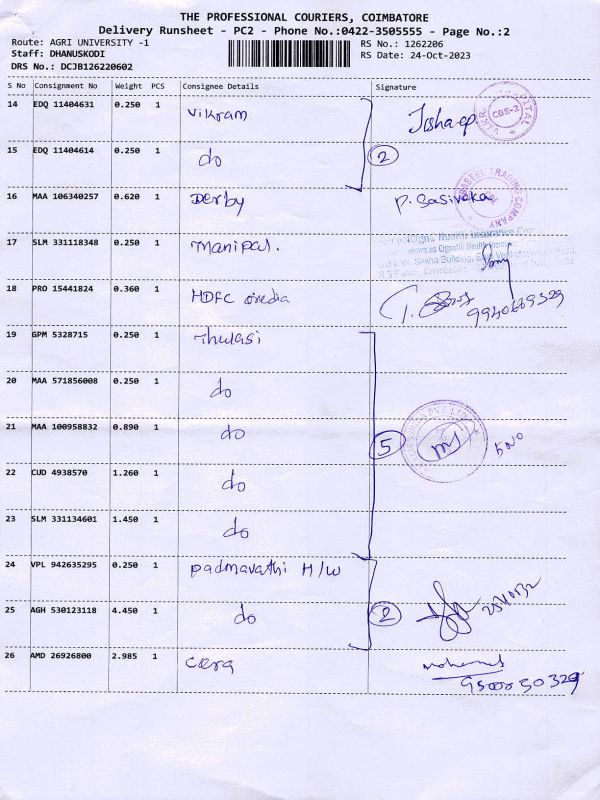 THE PROFESSIONAL COURIERS, COIMBATORE
Delivery Runsheet - PC2 - Phone No.:0422-3505555 - Page No.:2
Route: AGRI UNIVERSITY -1
Staff: DHANUSKODI
DRS No.: DCJB126220602
RS No.: 1262206
RS Date: 24-Oct-2023
S No Consignment No Weight PCS Consignee Details Signature
14 EDQ 11404631 0.250 1 Vikram
CBE-2
15 EDQ 11404614 0.250 1 do 2
16 MAA 106340257 0.620 1 Derby P. Sasireka
TRADING COMPANY
17 SLM 331118348 0.250 1 manipal.
Health Insurance
18 PRO 15441824 0.360 1 HDFC
19 GPM 5328715 0.250 1 Thulasi
20 MAA 571856008 0.250 1 do
21 MAA 100958832 0.890 1 do 5 5 NO
22 CUD 4938570 1.260 1 do
23 SLM 331134601 1.450 1 do
24 VPL 942635295 0.250 1 Padmavathi H/W
25 AGH 530123118 4.450 1 do 2
26 AMD 26926800 2.985 1 Cera